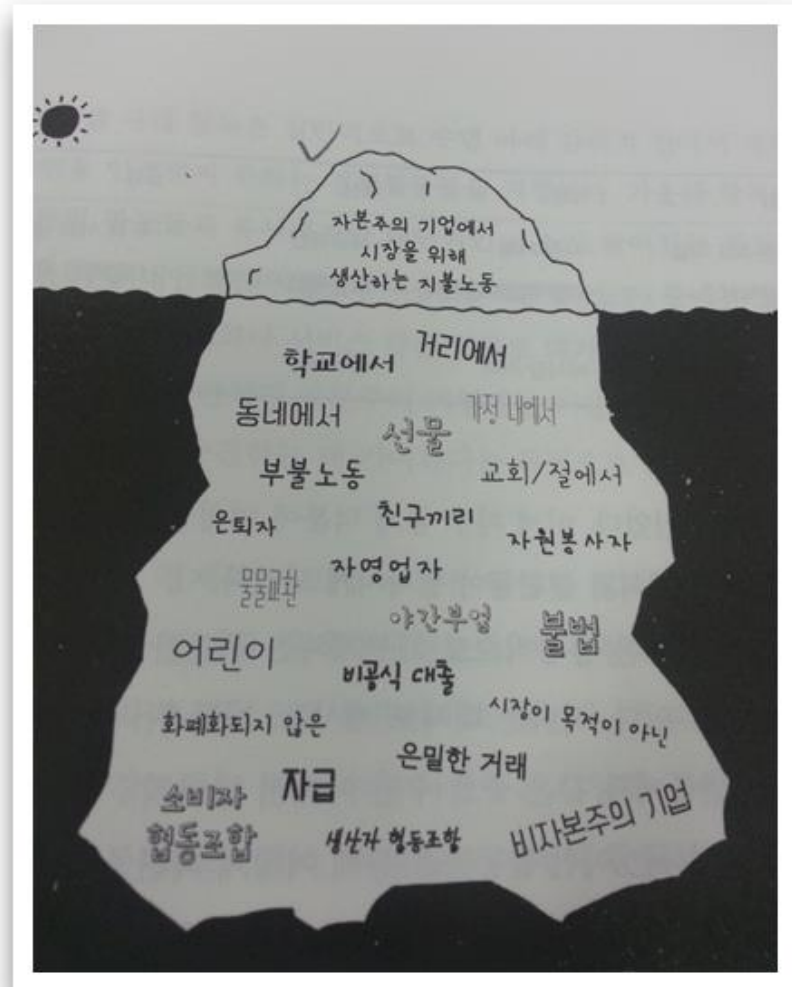 자본주의 기업에서
시장을 위해
생산하는 지불노동
학교에서
거리에서
동네에서
선물
가정 내에서
부불노동
교회/절에서
은퇴자
친구끼리
자원봉사자
자영업자
물물교환
야간부업
불법
어린이
비공식 대출
화폐화되지 않은
시장이 목적이 아닌
은밀한 거래
소비자
협동조합
자급
생산자 협동조합
비자본주의 기업